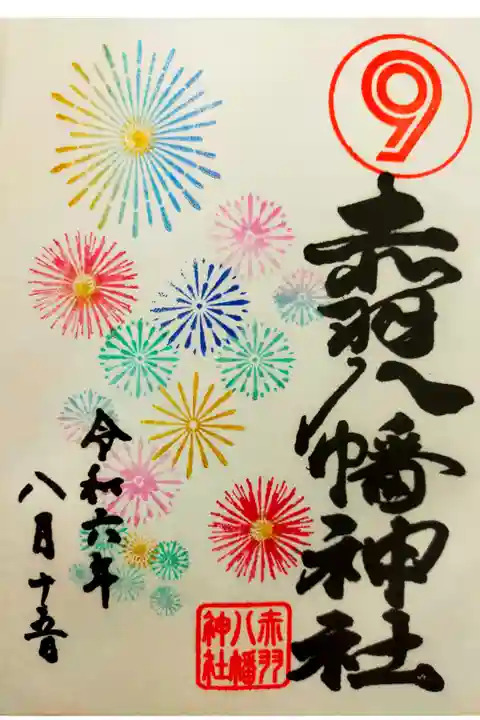 9
赤羽八幡神社
赤羽
八幡
神社
令和六年
八月十五日